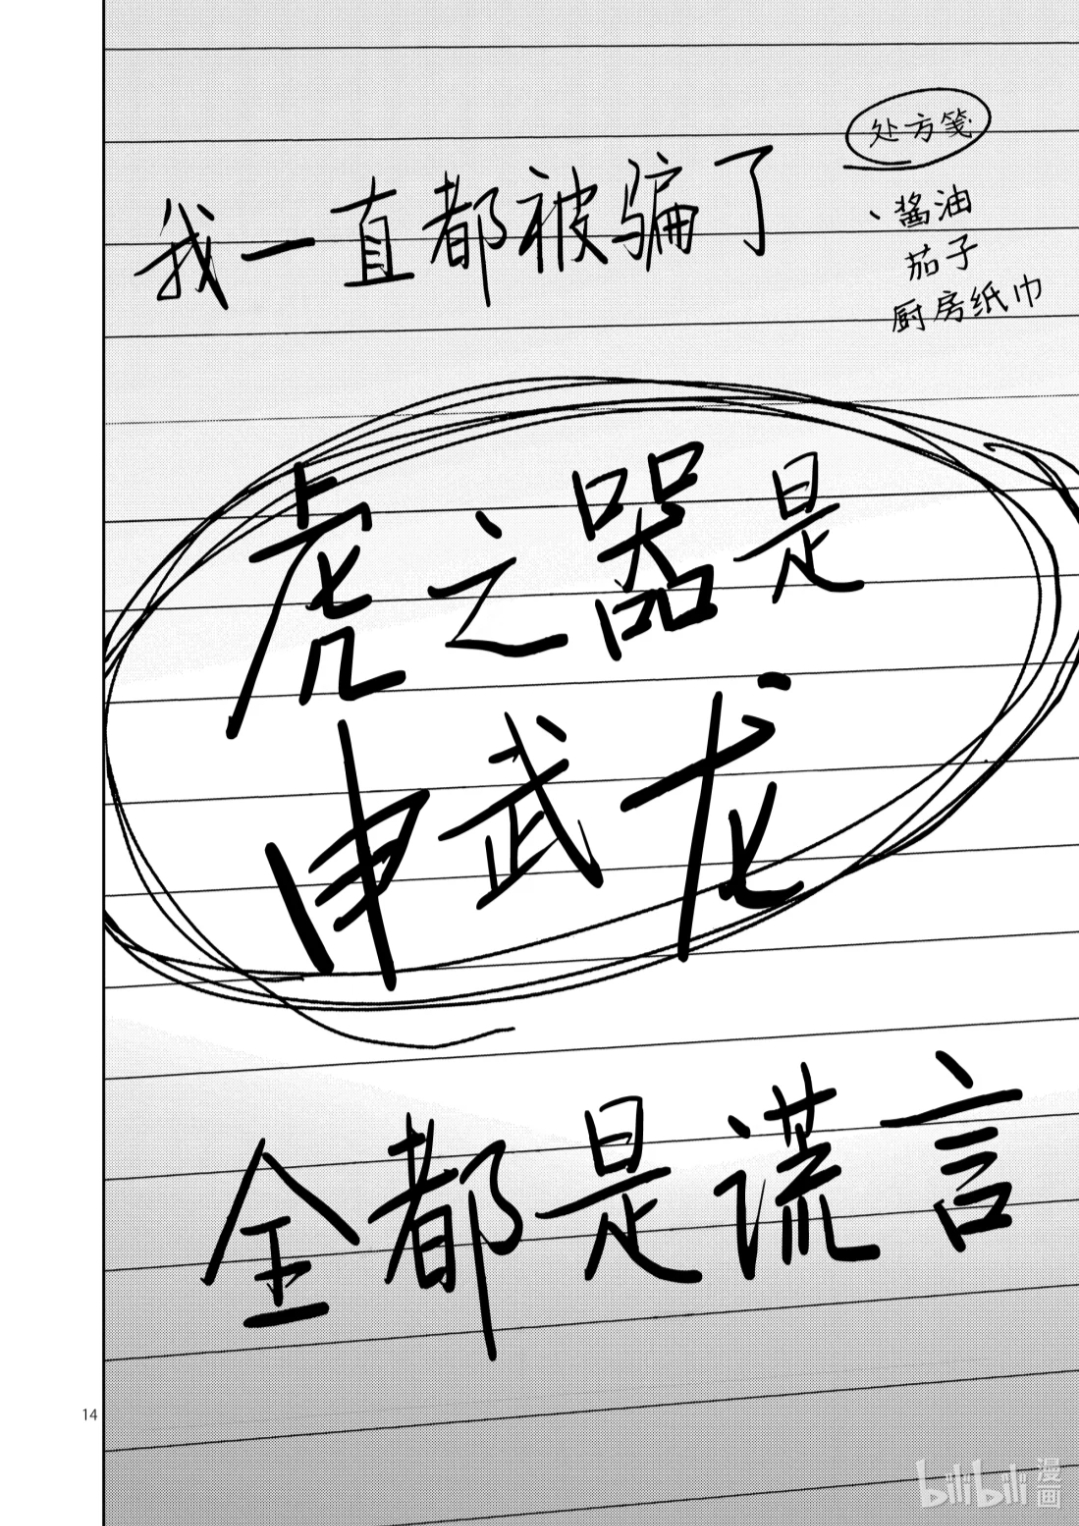 处方笺
、酱油
茄子
厨房纸巾
我一直都被骗了
虎之器是
申武龙
全都是谎言
14
bilibili 漫画